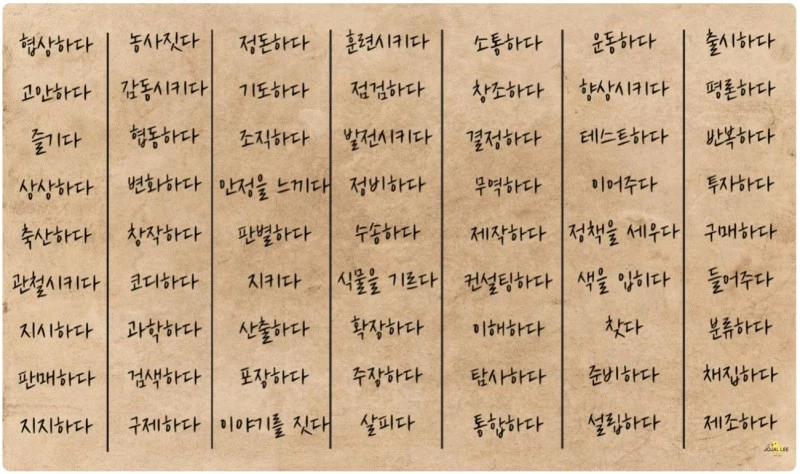 협상하다 농사짓다 정돈하다 훈련시키다 소통하다 운동하다 출시하다
고안하다 감동시키다 기도하다 점검하다 창조하다 향상시키다 평론하다
즐기다 협동하다 조직하다 발전시키다 결정하다 테스트하다 반복하다
상상하다 변화하다 안정을 느끼다 정비하다 무역하다 이어주다 투자하다
축산하다 창작하다 판별하다 수송하다 제작하다 정책을 세우다 구매하다
관철시키다 코디하다 지키다 식물을 기르다 컨설팅하다 색을 입히다 들어주다
지시하다 과학하다 산출하다 확장하다 이해하다 찾다 분류하다
판매하다 검색하다 포장하다 주장하다 탐사하다 준비하다 채집하다
지지하다 구제하다 이야기를 짓다 살피다 통합하다 설립하다 제조하다
JOJAL LEE